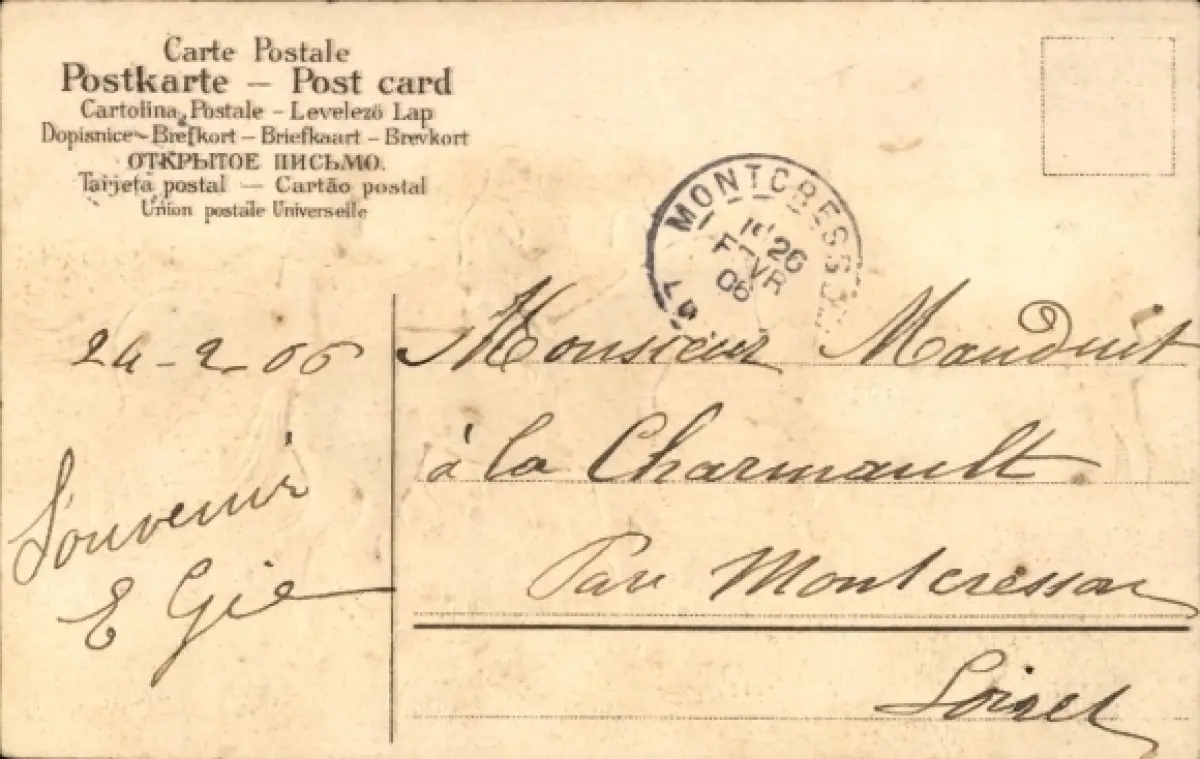 Carte Postale
Postkarte – Post card
Cartolina Postale – Levelezö Lap
Dopisnice – Brefkort – Briefkaart – Brevkort
ОТКРЫТОЕ ПИСЬМО.
Tarjeta postal — Cartão postal
Union postale Universelle
MONTCRESS
26
FEVR
06
24-2-06
Souvenir
E Gié
Monsieur Mauduit
à la Charmault
Par Montcresson
Loiret